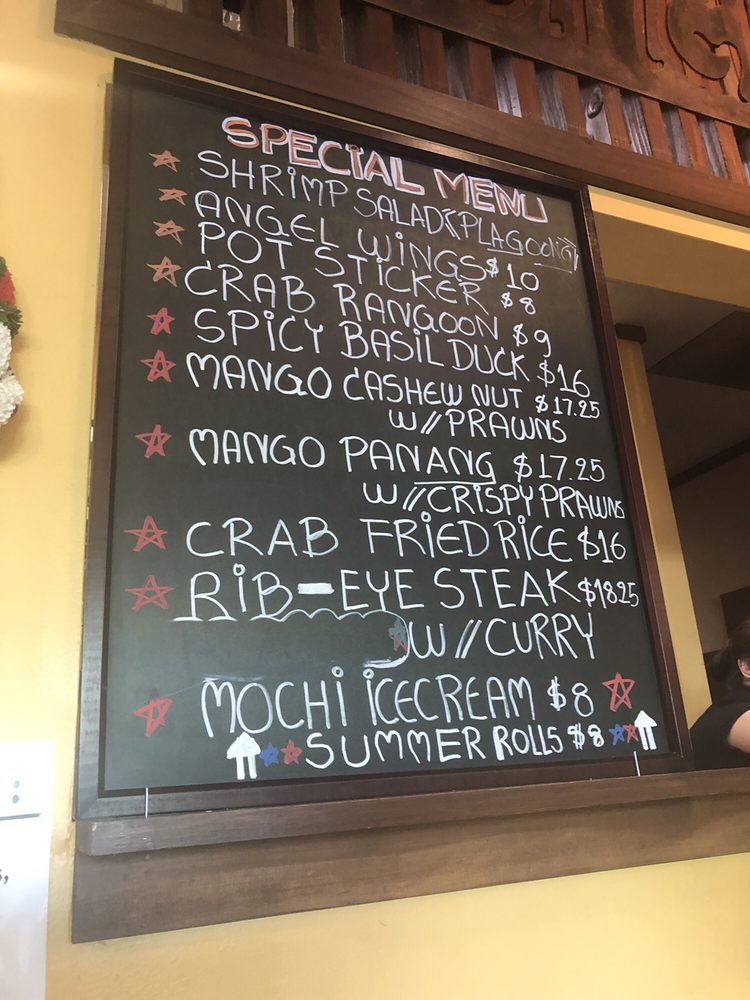 SPECIAL MENU
SHRIMP SALAD (PLAGOONG)
ANGEL WINGS $10
POT STICKER $8
CRAB RANGOON $9
SPICY BASIL DUCK $16
MANGO CASHEW NUT $17.25
W//PRAWNS
MANGO PANANG $17.25
W//CRISPY PRAWNS
CRAB FRIED RICE $16
RIB-EYE STEAK $18.25
W//CURRY
MOCHI ICECREAM $8
SUMMER ROLLS $8